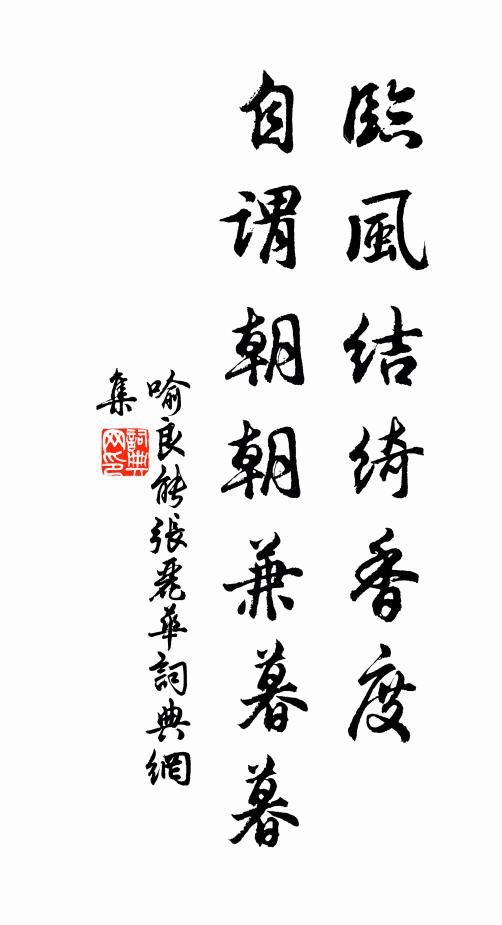 臨風結綺香度
自謂朝朝兼暮暮
喻良能張麗華詞典網
集
詞典
网印